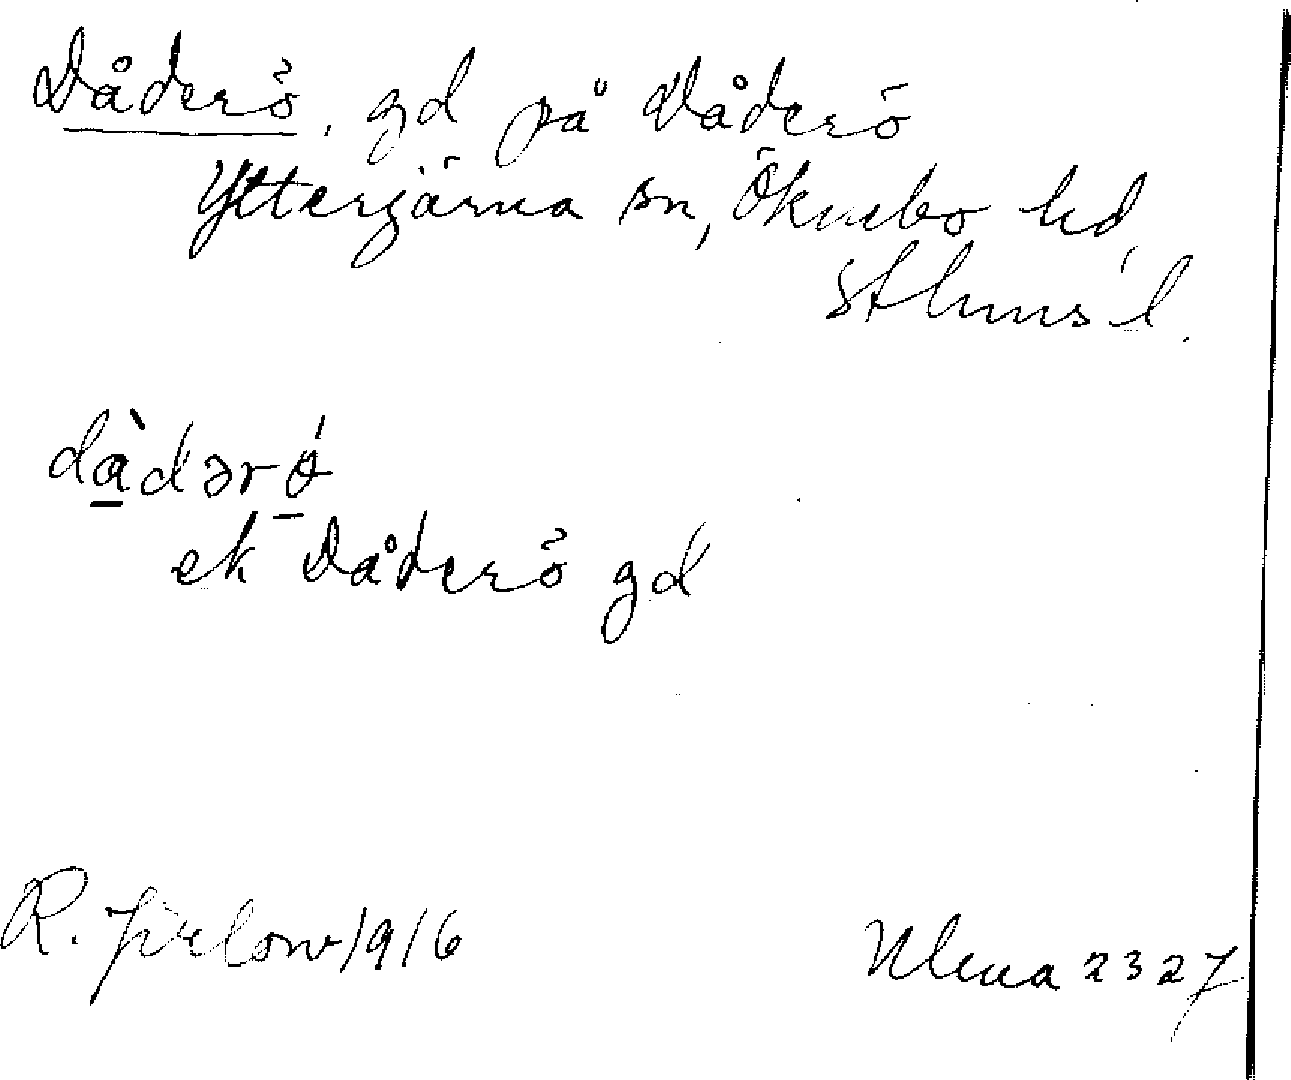 Dåderö, gd på Dåderö
Ytterjärna sn, Öknebo hd,
Sthms l.
dàdərǿ
ek Dåderö gd
R. Jirlow 1916
Ulma 2327